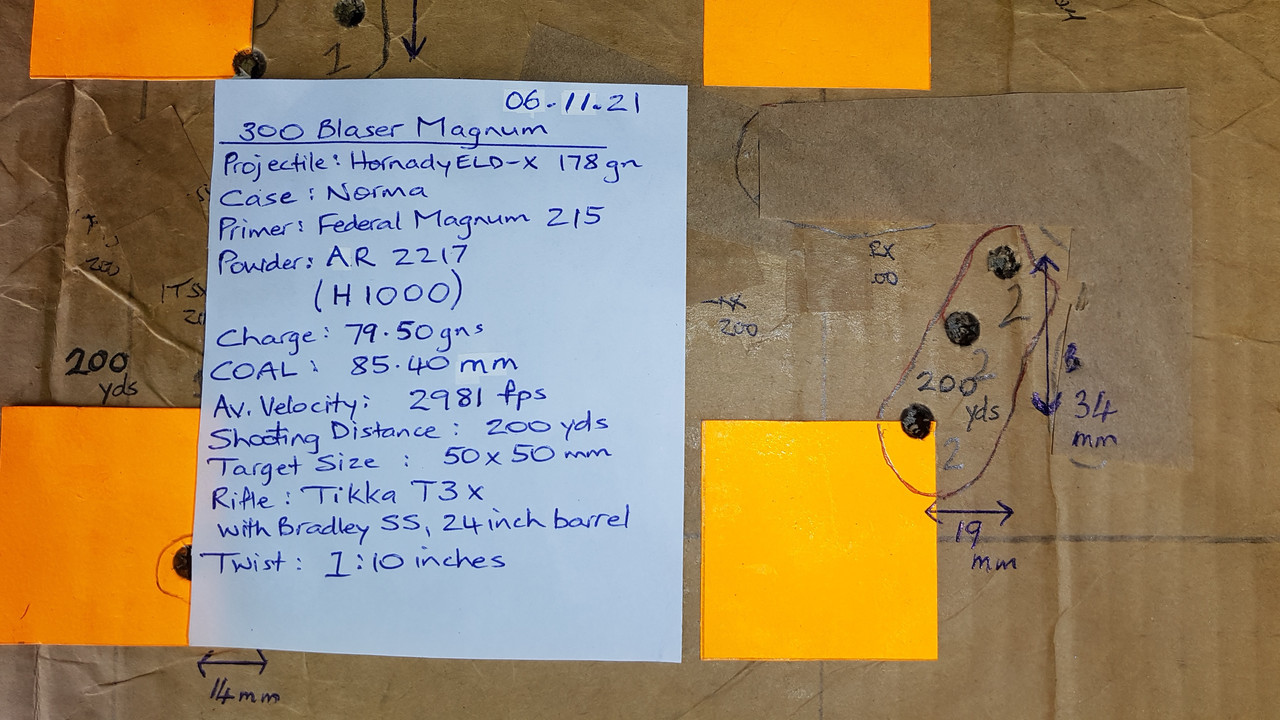 1
06.11.21
300 Blaser Magnum
Projectile: Hornady ELD-X 178gn
Case: Norma
Primer: Federal Magnum 215
Powder: AR 2217
(H1000)
Charge: 79.50gns
COAL: 85.40 mm
Av. Velocity: 2981 fps
Shooting Distance: 200 yds
Target Size: 50x50mm
Rifle: Tikka T3x
with Bradley SS, 24inch barrel
Twist: 1:10 inches
200
200
yds
14mm
200
2
2
200
yds
2
34
mm
19
mm